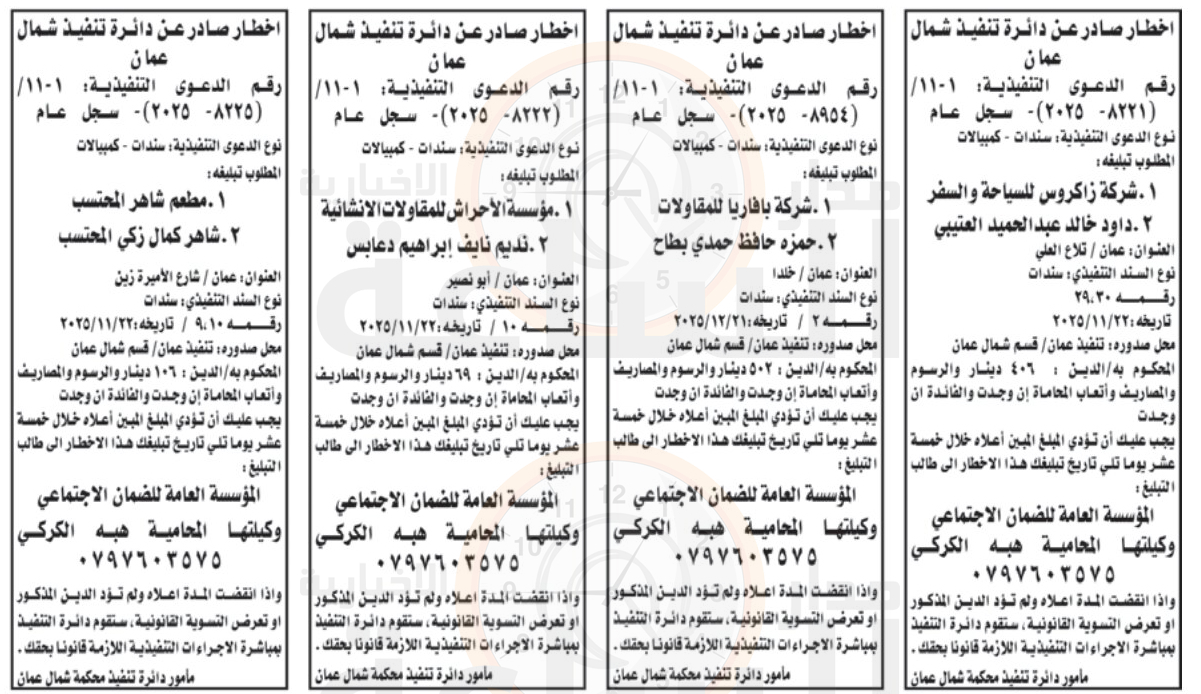 اخطار صادر عن دائرة تنفيذ شمال
عمان
رقم الدعوى التنفيذية: ١-١١/
(٨٢٢١- ٢٠٢٥)- سجل عام
نوع الدعوى التنفيذية: سندات - كمبيالات
المطلوب تبليغه:
١.شركة زاكروس للسياحة والسفر
٢.داود خالد عبدالحميد العتيبي
العنوان: عمان / تلاع العلي
نوع السند التنفيذي: سندات
رقـــمــه ٢٩،٣٠
تاريخه:٢٠٢٥/١١/٢٢
محل صدوره: تنفيذ عمان/ قسم شمال عمان
المحكوم به/الدين : ٤٠٦ دينار والرسوم
والمصاريف وأتعاب المحاماة إن وجدت والفائدة ان
وجدت
يجب عليك أن تؤدي المبلغ المبين أعلاه خلال خمسة
عشر يوما تلي تاريخ تبليغك هذا الاخطار الى طالب
التبليغ:
المؤسسة العامة للضمان الاجتماعي
وكيلتها المحامية هبه الكركي
٠٧٩٧٦٠٣٥٧٥
واذا انقضت المدة اعلاه ولم تؤد الدين المذكور
او تعرض التسوية القانونية، ستقوم دائرة التنفيذ
بمباشرة الاجراءات التنفيذية اللازمة قانونا بحقك .
مأمور دائرة تنفيذ محكمة شمال عمان
اخطار صادر عن دائرة تنفيذ شمال
عمان
رقم الدعوى التنفيذية: ١-١١/
(٨٩٥٤- ٢٠٢٥)- سجل عام
نوع الدعوى التنفيذية: سندات - كمبيالات
المطلوب تبليغه:
١.شركة بافاريا للمقاولات
٢.حمزه حافظ حمدي بطاح
العنوان: عمان / خلدا
نوع السند التنفيذي: سندات
رقـــمــه ٢ / تاريخه:٢٠٢٥/١٢/٢١
محل صدوره: تنفيذ عمان/ قسم شمال عمان
المحكوم به/الدين : ٥٠٢ دينار والرسوم والمصاريف
وأتعاب المحاماة إن وجدت والفائدة ان وجدت
يجب عليك أن تؤدي المبلغ المبين أعلاه خلال خمسة
عشر يوما تلي تاريخ تبليغك هذا الاخطار الى طالب
التبليغ :
المؤسسة العامة للضمان الاجتماعي
وكيلتها المحامية هبه الكركي
٠٧٩٧٦٠٣٥٧٥
واذا انقضت المدة اعلاه ولم تؤد الدين المذكور
او تعرض التسوية القانونية، ستقوم دائرة التنفيذ
بمباشرة الاجراءات التنفيذية اللازمة قانونا بحقك .
مأمور دائرة تنفيذ محكمة شمال عمان
اخطار صادر عن دائرة تنفيذ شمال
عمان
رقم الدعوى التنفيذية: ١-١١/
(٨٢٢٢- ٢٠٢٥)- سجل عام
نوع الدعوى التنفيذية: سندات - كمبيالات
المطلوب تبليغه:
١.مؤسسة الأحراش للمقاولات الانشائية
٢.نديم نايف إبراهيم دعابس
العنوان: عمان / أبو نصير
نوع السند التنفيذي: سندات
رقـــمــه ١٠ / تاريخه:٢٠٢٥/١١/٢٢
محل صدوره: تنفيذ عمان/ قسم شمال عمان
المحكوم به/الدين : ٦٩ دينار والرسوم والمصاريف
وأتعاب المحاماة إن وجدت والفائدة ان وجدت
يجب عليك أن تؤدي المبلغ المبين أعلاه خلال خمسة
عشر يوما تلي تاريخ تبليغك هذا الاخطار الى طالب
التبليغ :
المؤسسة العامة للضمان الاجتماعي
وكيلتها المحامية هبه الكركي
٠٧٩٧٦٠٣٥٧٥
واذا انقضت المدة اعلاه ولم تؤد الدين المذكور
او تعرض التسوية القانونية، ستقوم دائرة التنفيذ
بمباشرة الاجراءات التنفيذية اللازمة قانونا بحقك .
مأمور دائرة تنفيذ محكمة شمال عمان
اخطار صادر عن دائرة تنفيذ شمال
عمان
رقم الدعوى التنفيذية: ١-١١/
(٨٢٢٥- ٢٠٢٥)- سجل عام
نوع الدعوى التنفيذية: سندات - كمبيالات
المطلوب تبليغه:
١.مطعم شاهر المحتسب
٢.شاهر كمال زكي المحتسب
العنوان: عمان / شارع الأميرة زين
نوع السند التنفيذي: سندات
رقـــمــه ٩،١٠ / تاريخه:٢٠٢٥/١١/٢٢
محل صدوره: تنفيذ عمان/ قسم شمال عمان
المحكوم به/الدين : ١٠٦ دينار والرسوم والمصاريف
وأتعاب المحاماة إن وجدت والفائدة ان وجدت
يجب عليك أن تؤدي المبلغ المبين أعلاه خلال خمسة
عشر يوما تلي تاريخ تبليغك هذا الاخطار الى طالب
التبليغ :
المؤسسة العامة للضمان الاجتماعي
وكيلتها المحامية هبه الكركي
٠٧٩٧٦٠٣٥٧٥
واذا انقضت المدة اعلاه ولم تؤد الدين المذكور
او تعرض التسوية القانونية، ستقوم دائرة التنفيذ
بمباشرة الاجراءات التنفيذية اللازمة قانونا بحقك .
مأمور دائرة تنفيذ محكمة شمال عمان